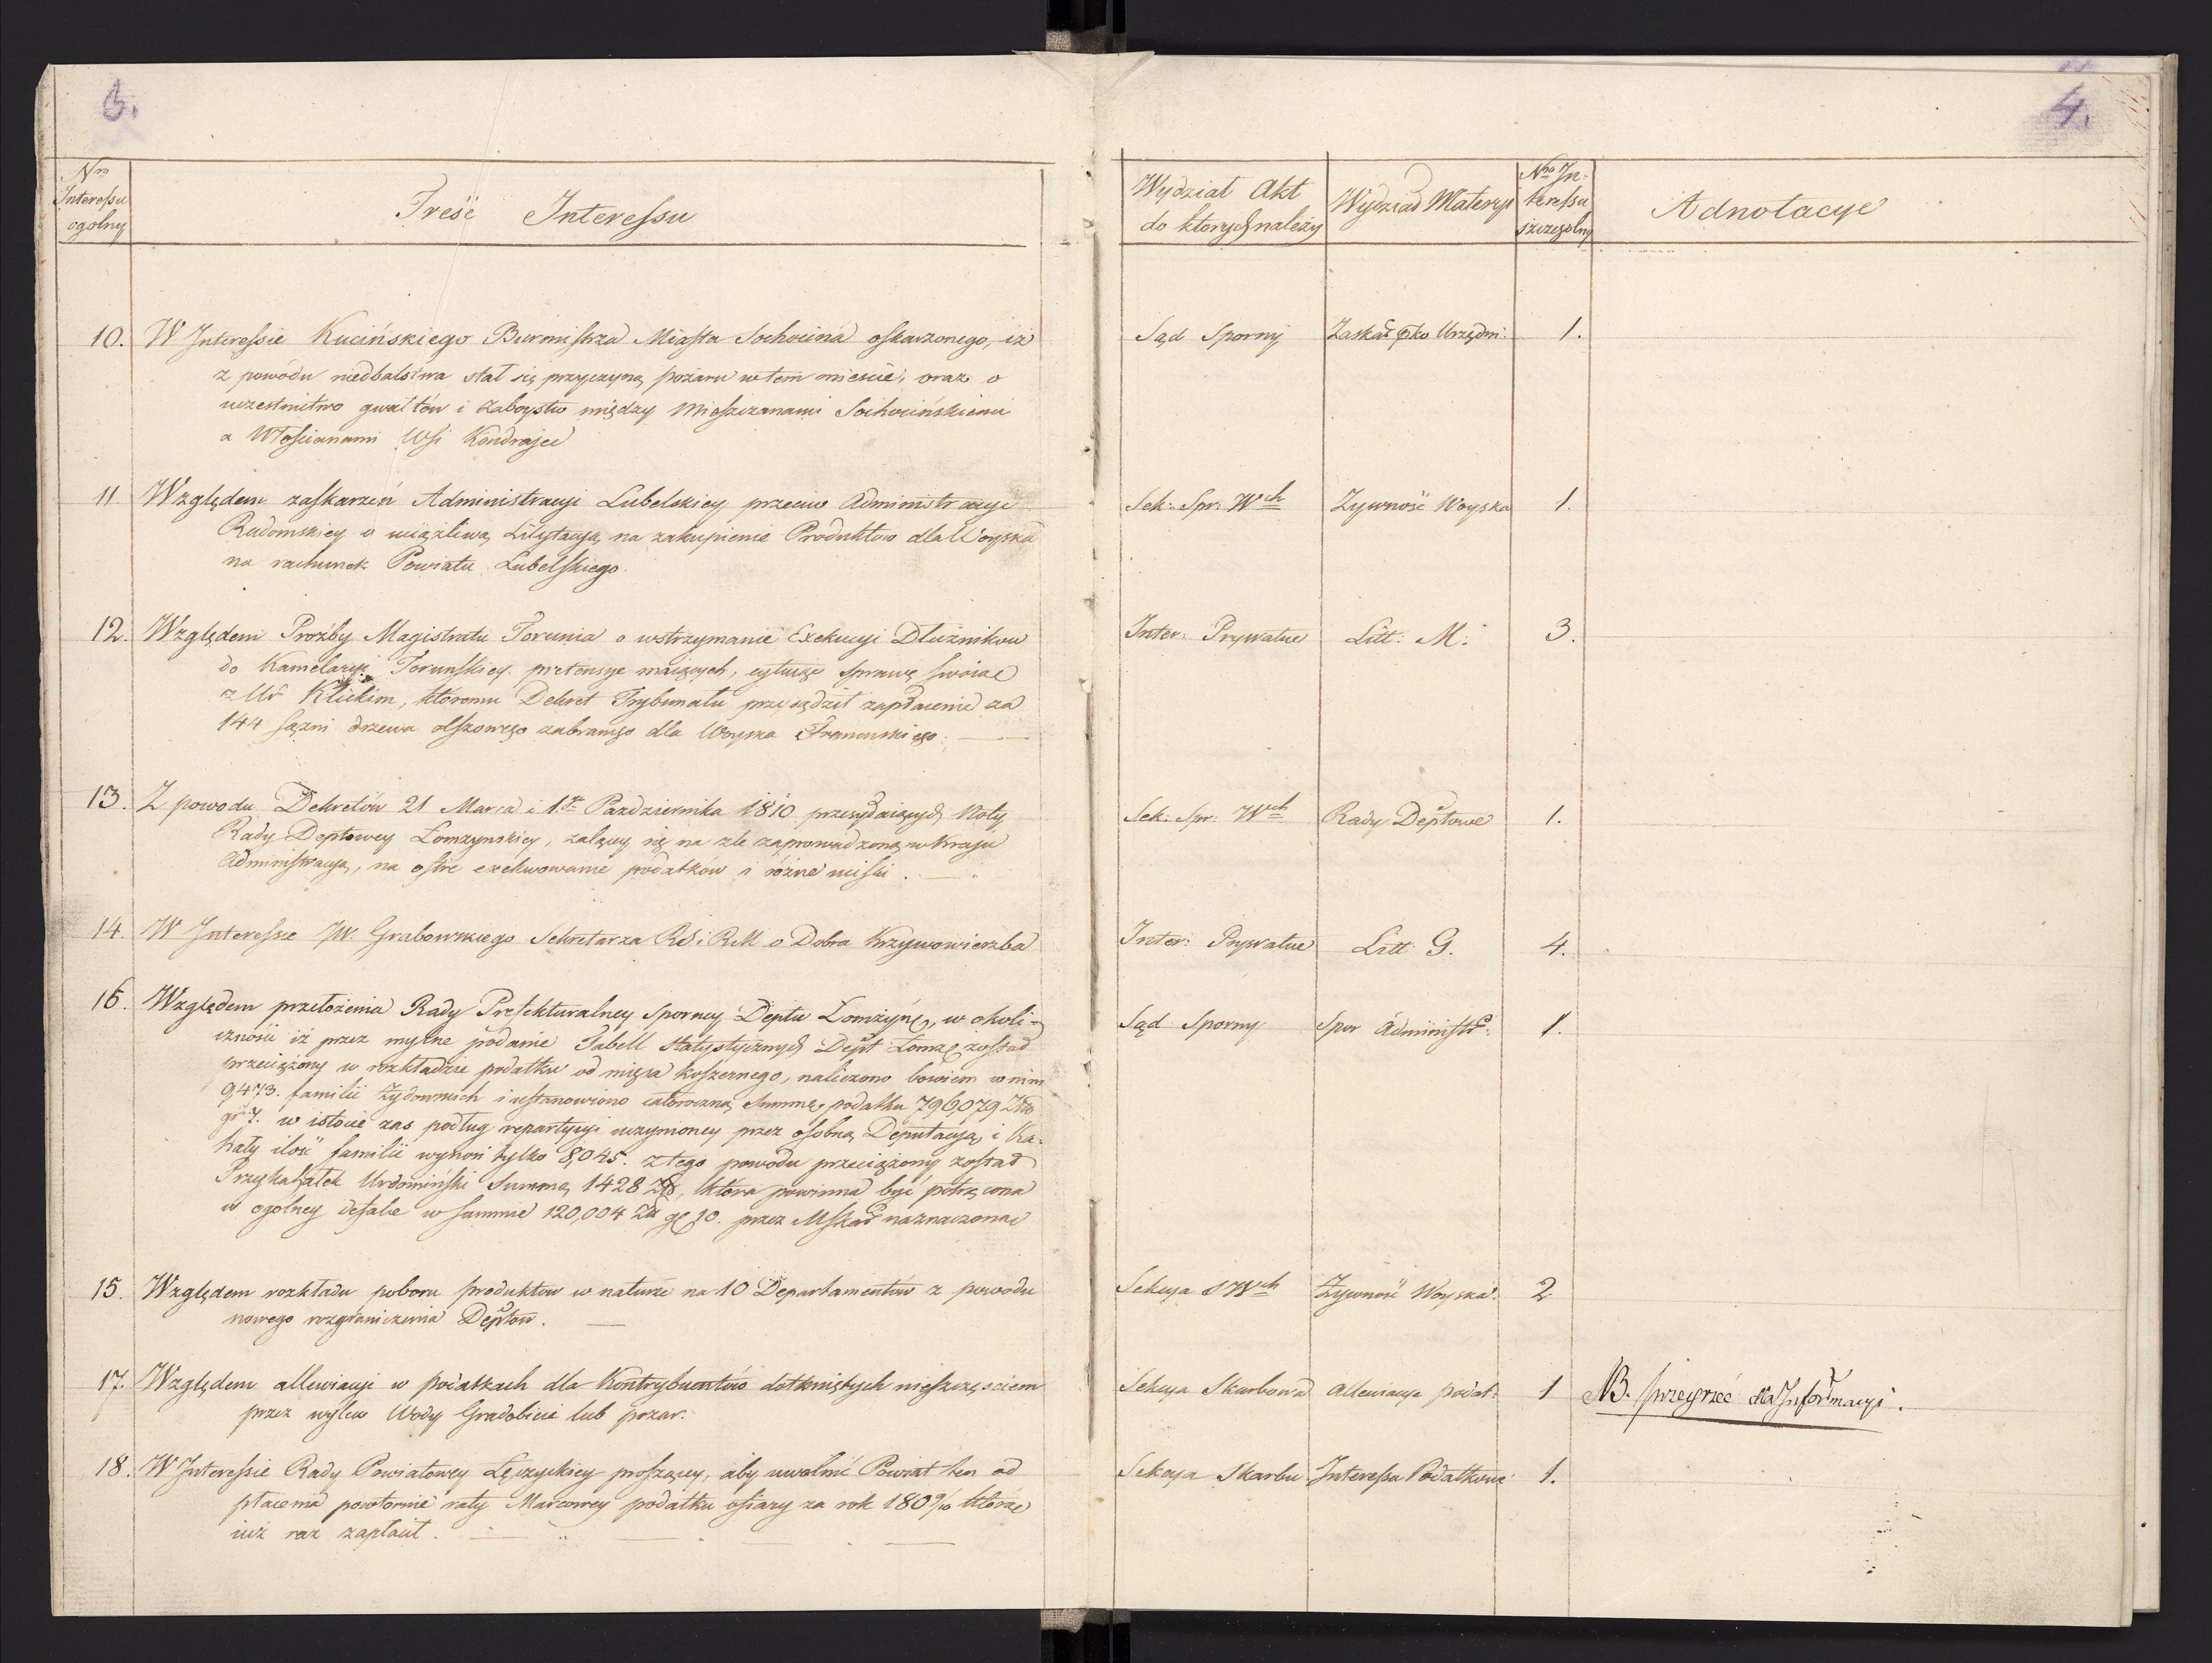 3.
4.
Nro
Interessu
ogolny
Treść Interessu
Wydział Akt
do których należy
Wydział Materyi
Nro In-
teressu
szczegolny
Adnotacye
10. W Interessie Kucińskiego Burmistrza Miasta Sochocina oskarzonego, iż
z powodu niedbalstwa stał się przyczyną pożaru w tem mieście, oraz o
uczestnitwo gwałtów i zaboystw między Mieszczanami Sochocińskiemi
a Włościanami Wsi Kondrajec
Sąd Sporny Zaskar pko Urzędni: 1.
11. Względem zaskarzeń Administracyi Lubelskiey przeciw Administracyi
Radomskiey o uciążliwą Licytacyą na zakupienie Produktow dla Woyska
na rachunek Powiatu Lubelskiego.
Sek: Spr: Wch Zywność Woyska 1.
12. Względem Prozby Magistratu Torunia o wstrzymanie Exekucyi Dłużnikow
do Kamelaryi Torunskiey pretensye maiących, cytuiąc sprawę swoią
z Ur Klickim, ktoremu Dekret Trybunału przysądził zapłacenie za
144 sążni drzewa olszowego zabranego dla Woyska Francuskiego.
Inter: Prywatne Litt: M: 3.
13. Z powodu Dekretów 21 Marca i 1go Pazdziernika 1810 przesyłaiących Noty
Rady Deptowey Lomzynskiey, zalącey się na zle zaprowadzoną w Kraju
Administracyą, na ostre exekwowanie podatkow i różne uciski.
Sek: Spr: Wch Rady Deptowe 1.
14. W Interessie JW. Grabowskiego Sekretarza RS i RM o Dobra Krzywowierzba
Inter: Prywatne Litt G. 4.
16. Względem przełożenia Rady Prefekturalney Sporney Deptu Łomżyń, w okoli-
czności iż przez mylne podanie Tabell Statystycznych Dept Łomż został
przeciążony w rozkładzie podatku od mięsa koszernego, naliczono bowiem w nim
9,473. familii Żydowskich i ustanowiono całoroczną Summę podatku 796,079 Złt
gr 7. w istocie zas podług repartycyi uczynioney przez osobną Deputacyą i Ka-
hały ilość familii wynosi tylko 8,045. z tego powodu przeciążony został
Przykahałek Urdomiński Summą 1428 Zł, która powinna być potrącona
w ogólney defalce w summie 120,004 Zł gr 10. przez MSkar naznaczona
Sąd Sporny Spor Administr: 1.
15. Względem rozkładu poboru produktow w naturze na 10 Departamentów z powodu
nowego rozgraniczenia Deptow.
Sekcya S Wch Żywność Woyska. 2
17. Względem allewiacyi w podatkach dla Kontrybuentów dotkniętych nieszczęsciem
przez wylew Wody Gradobicie lub pozar.
Sekcya Skarbowa Allewiacya podat: 1 NB. przeyrzeć dla Informacyi.
18. W Interessie Rady Powiatowey Łęczyckiey proszącey, aby uwolnić Powiat ten od
płacenia powtornie raty Marcowey podatku ofiary za rok 1809/10 którą
iuż raz zapłacił.
Sekcya Skarbu Interessa Podatkowe 1.